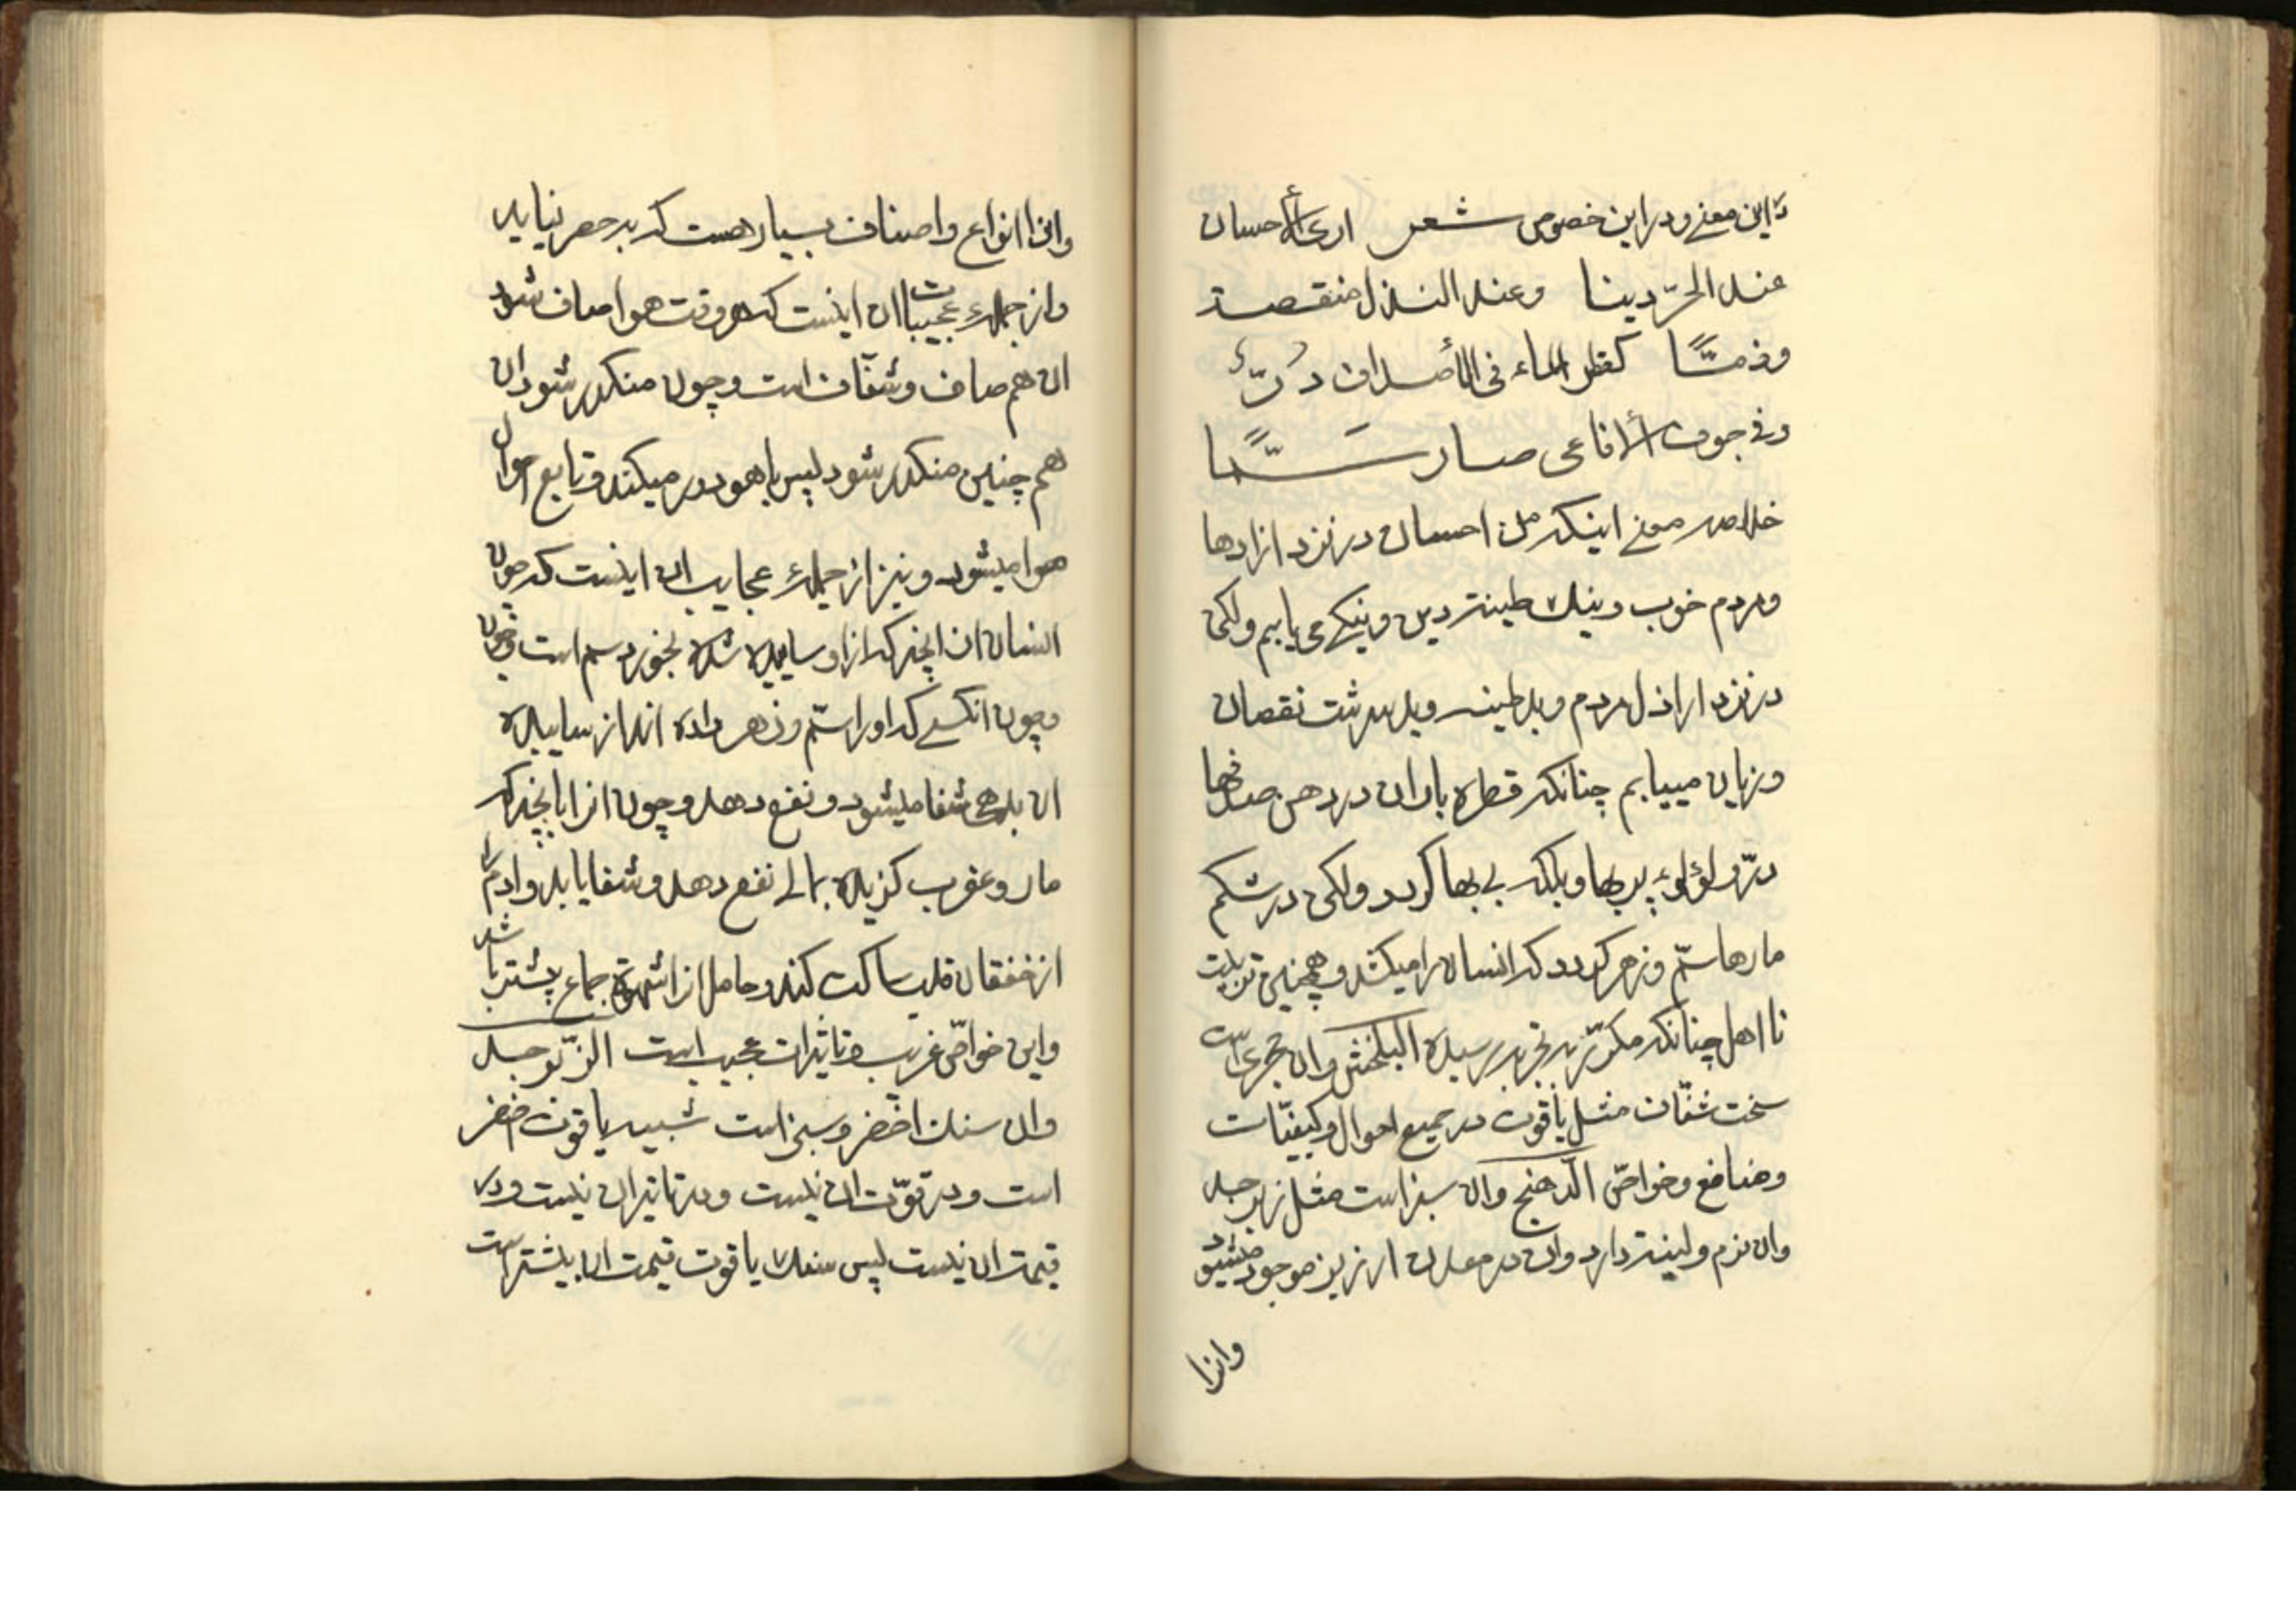 این معنی ودر این خصوص شعر اری الأحسان
عند الحرّ دینا وعند النذل منقصة
وذمّـًا کقطر الماء فی الأصداف درّ
وفی جوف الأفاعی صار سمًّا
خلاصه معنی اینکه من احسان در نزد ازادها
ومردم خوب ونیك طینة دین ونیکی می یابم ولکن
در نزد اراذل مردم وبد طینت وبد سرشت نقصان
وزیان مییابم چنانکه قطره باران در دهن صدفها
درّ ولؤلوء پر بها وبلکه بی بها کردد ولکن در شکم
مارها سمّ وزهر کردد که انسان را میکشد وهمچنین تربیت
نا اهل چنانکه مکرّر بتجربه رسیده البلخش وان حجری است
سخت شفّاف مثل یاقوت در جمیع احوال وکیفیّات
ومنافع وخواصّ الدّهنج وان سبز است مثل زبرجد
وان نرم ولینة دارد وان در معدن موجود میشود
وانرا
وانرا انواع واصناف بسیار هست که بر حصر نیاید
واز جملهء عجیبات ان اینست که هر وقت هوا صاف شود
ان هم صاف وشفّاف است وچون منکدر شود ان
هم چنین منکدر شود پس با هوا دور میکند وتابع احوال
هوا میشود ونیز از جملهء عجایب ان اینست که چون
انسان ان انچه که از او ساییده شده بخورد سم است
وچون انکسی که اورا سمّ وزهر داده اند از ساییده
ان بدهی شفا میشود ونفع دهد وچون انرا بانچه که
مار وعقرب کزیده بمالی نفع دهد وشفا یابد وادم را
از خفقان قلب ساکت کند وحامل انرا شهوة جماع بیشتر باشد
واین خواصّ غریب وتاثیرات عجیب است الزّبرجد
وان سنك اخضر وسبز است شبیه یاقوت اخضر
است ودر قوّت ان نیست ودر تاثیر ان نیست ودر
قیمت ان نیست پس سنك یاقوت قیمت ان بیشتر است